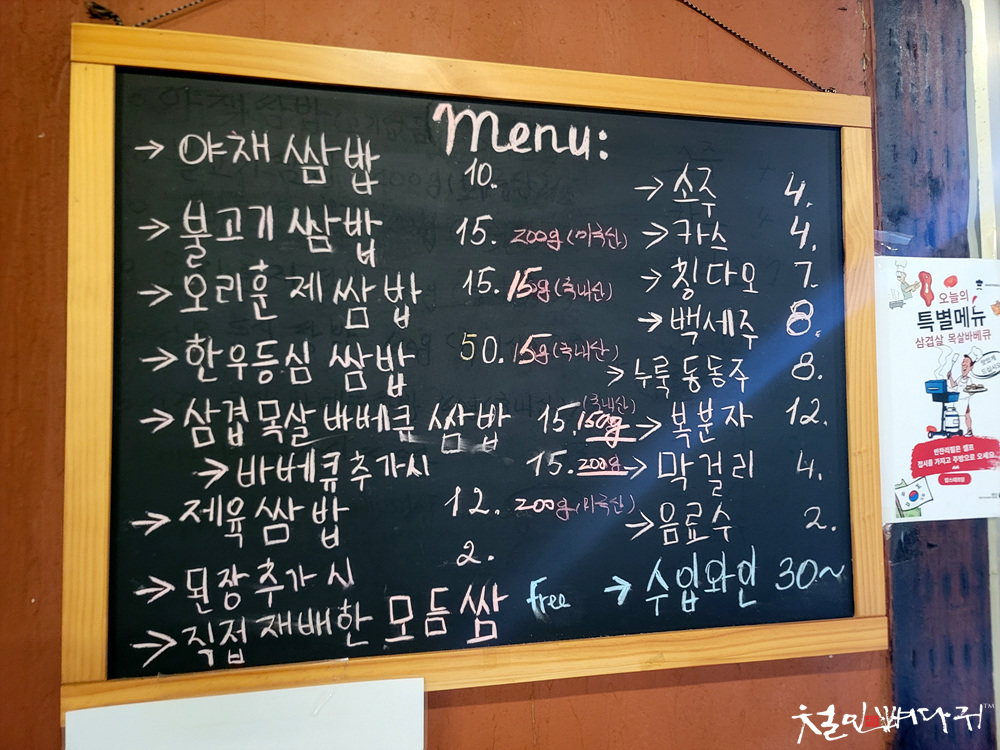 Menu:
→ 야채 쌈밥 10.
→ 불고기 쌈밥 15. 200g (미국산)
→ 오리훈제 쌈밥 15. 15g (국내산)
→ 한우등심 쌈밥 50. 15g (국내산)
→ 삼겹목살 바베큐 쌈밥 15. 150g (국내산)
→ 바베큐 추가시 15. 200g
→ 제육쌈밥 12. 200g (미국산)
→ 된장 추가시 2.
→ 직접 재배한 모듬쌈 free
→ 소주 4.
→ 카스 4.
→ 칭다오 7.
→ 백세주 8.
→ 누룩 동동주 8.
→ 복분자 12.
→ 막걸리 4.
→ 음료수 2.
→ 수입와인 30~
오늘의
특별메뉴
삼겹살 목살바베큐
반찬리필은 셀프
접시를 가지고 주방으로 오세요..
철민빠다쥐™